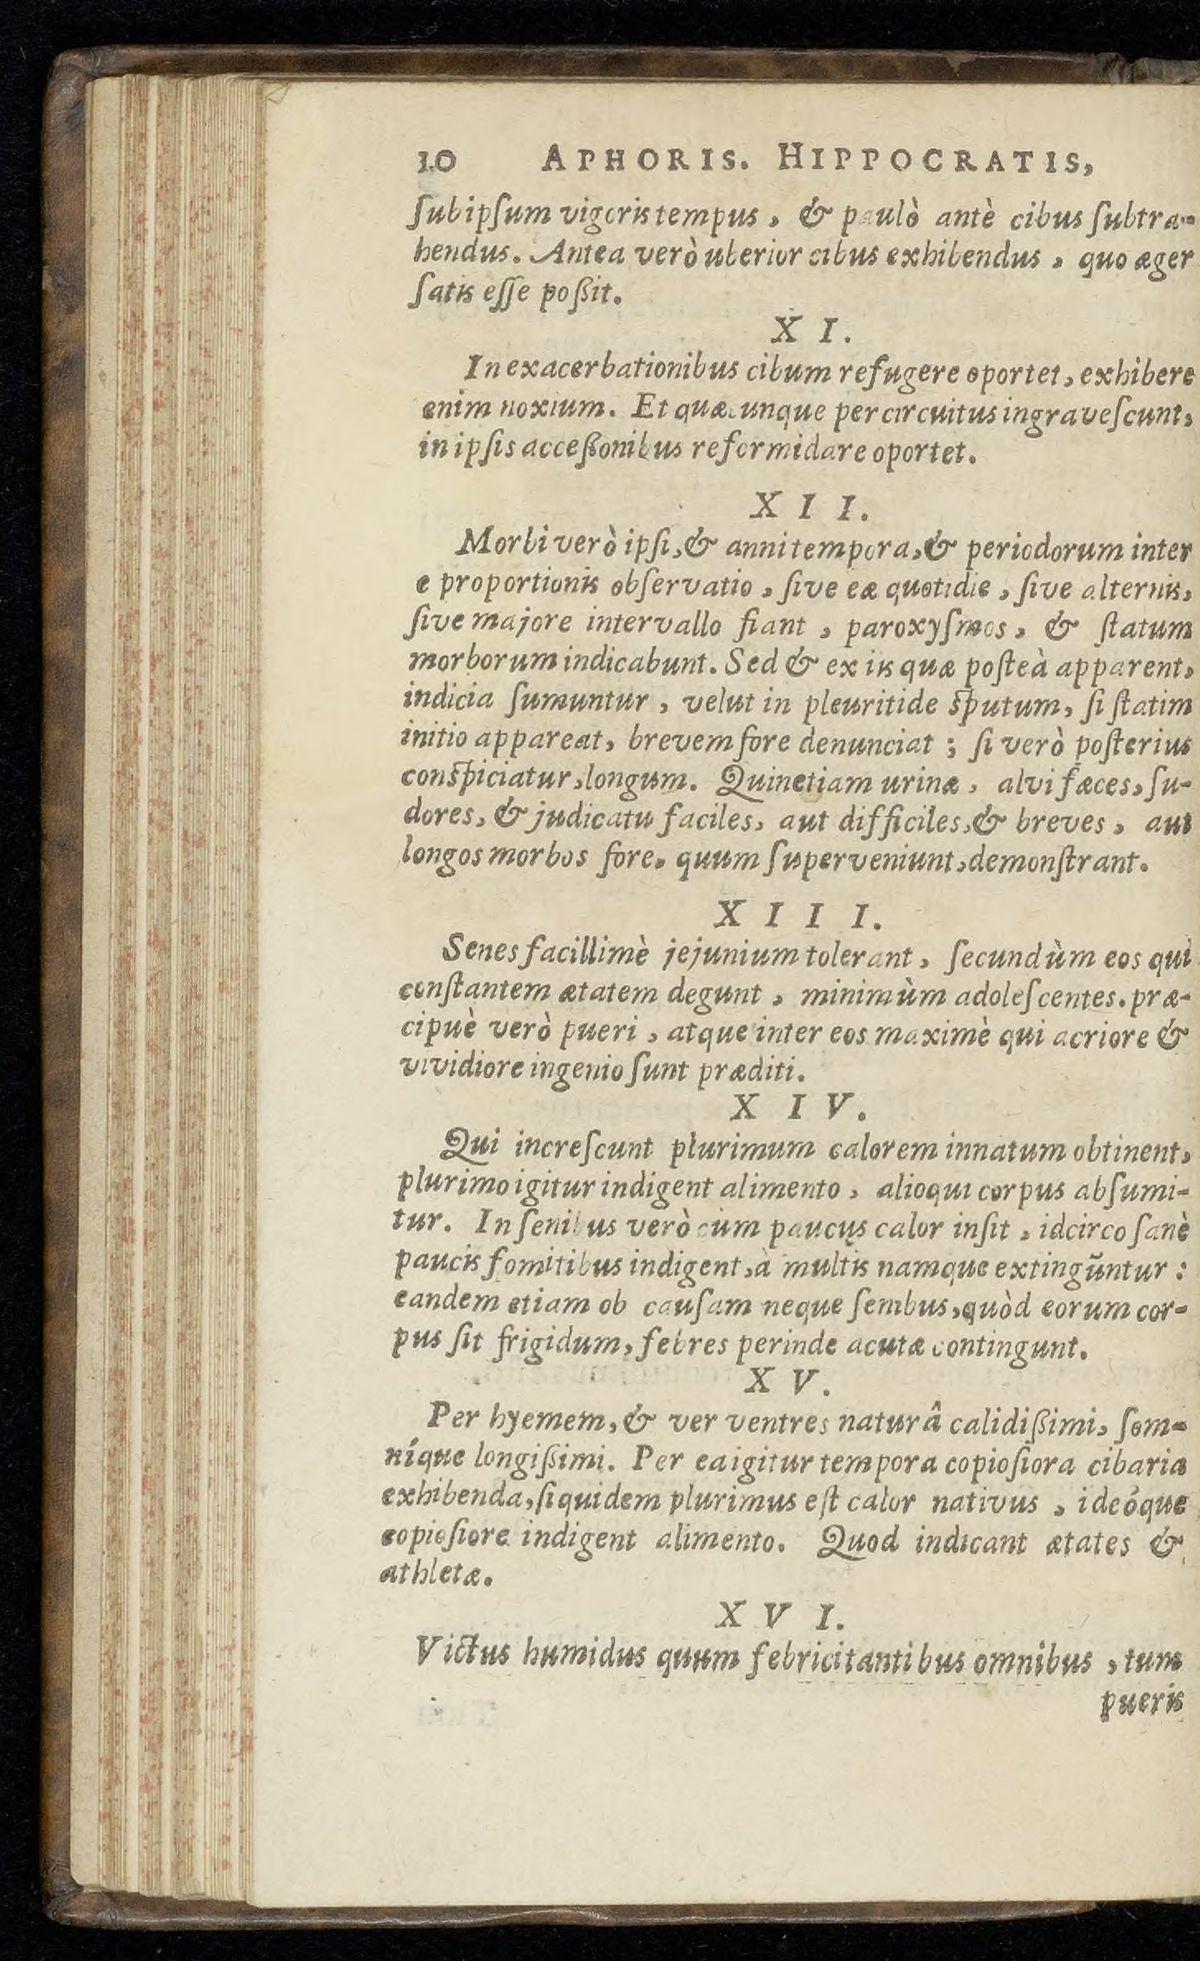 10 APHORIS. HIPPOCRATIS,
ſub ipſum vigoris tempus, & paulò antè cibus ſubtra-
hendus. Antea verò uberior cibus exhibendus, quo æger
ſatis eſſe poßit.
XI.
In exacerbationibus cibum refugere oportet, exhibere
enim noxium. Et quæcunque per circuitus ingraveſcunt,
in ipſis acceßionibus reformidare oportet.
XII.
Morbi verò ipſi, & anni tempora, & periodorum inter
e proportionis obſervatio, ſive eæ quotidie, ſive alternis,
ſive majore intervallo fiant, paroxyſmos, & ſtatum
morborum indicabunt. Sed & ex iis quæ poſteà apparent,
indicia ſumuntur, velut in pleuritide ſputum, ſi ſtatim
initio appareat, brevem fore denunciat; ſi verò poſterius
conſpiciatur, longum. Quinetiam urinæ, alvi fæces, ſu-
dores, & judicatu faciles, aut difficiles, & breves, aut
longos morbos fore, quum ſuperveniunt, demonſtrant.
XIII.
Senes facillimè jejunium tolerant, ſecundùm eos qui
conſtantem ætatem degunt, minimùm adoleſcentes. præ-
cipuè verò pueri, atque inter eos maximè qui acriore &
vividiore ingenio ſunt præditi.
XIV.
Qui increſcunt plurimum calorem innatum obtinent,
plurimo igitur indigent alimento, alioqui corpus abſumi-
tur. In ſenibus verò cùm paucus calor inſit, idcirco ſanè
paucis fomitibus indigent, à multis namque extingũntur:
eandem etiam ob cauſam neque ſenibus, quòd eorum cor-
pus ſit frigidum, febres perinde acutæ contingunt.
XV.
Per hyemem, & ver ventres naturâ calidißimi, ſom-
níque longißimi. Per ea igitur tempora copioſiora cibaria
exhibenda, ſiquidem plurimus eſt calor nativus, ideóque
copioſiore indigent alimento. Quod indicant ætates &
athletæ.
XVI.
Victus humidus quum febricitantibus omnibus, tum
pueris